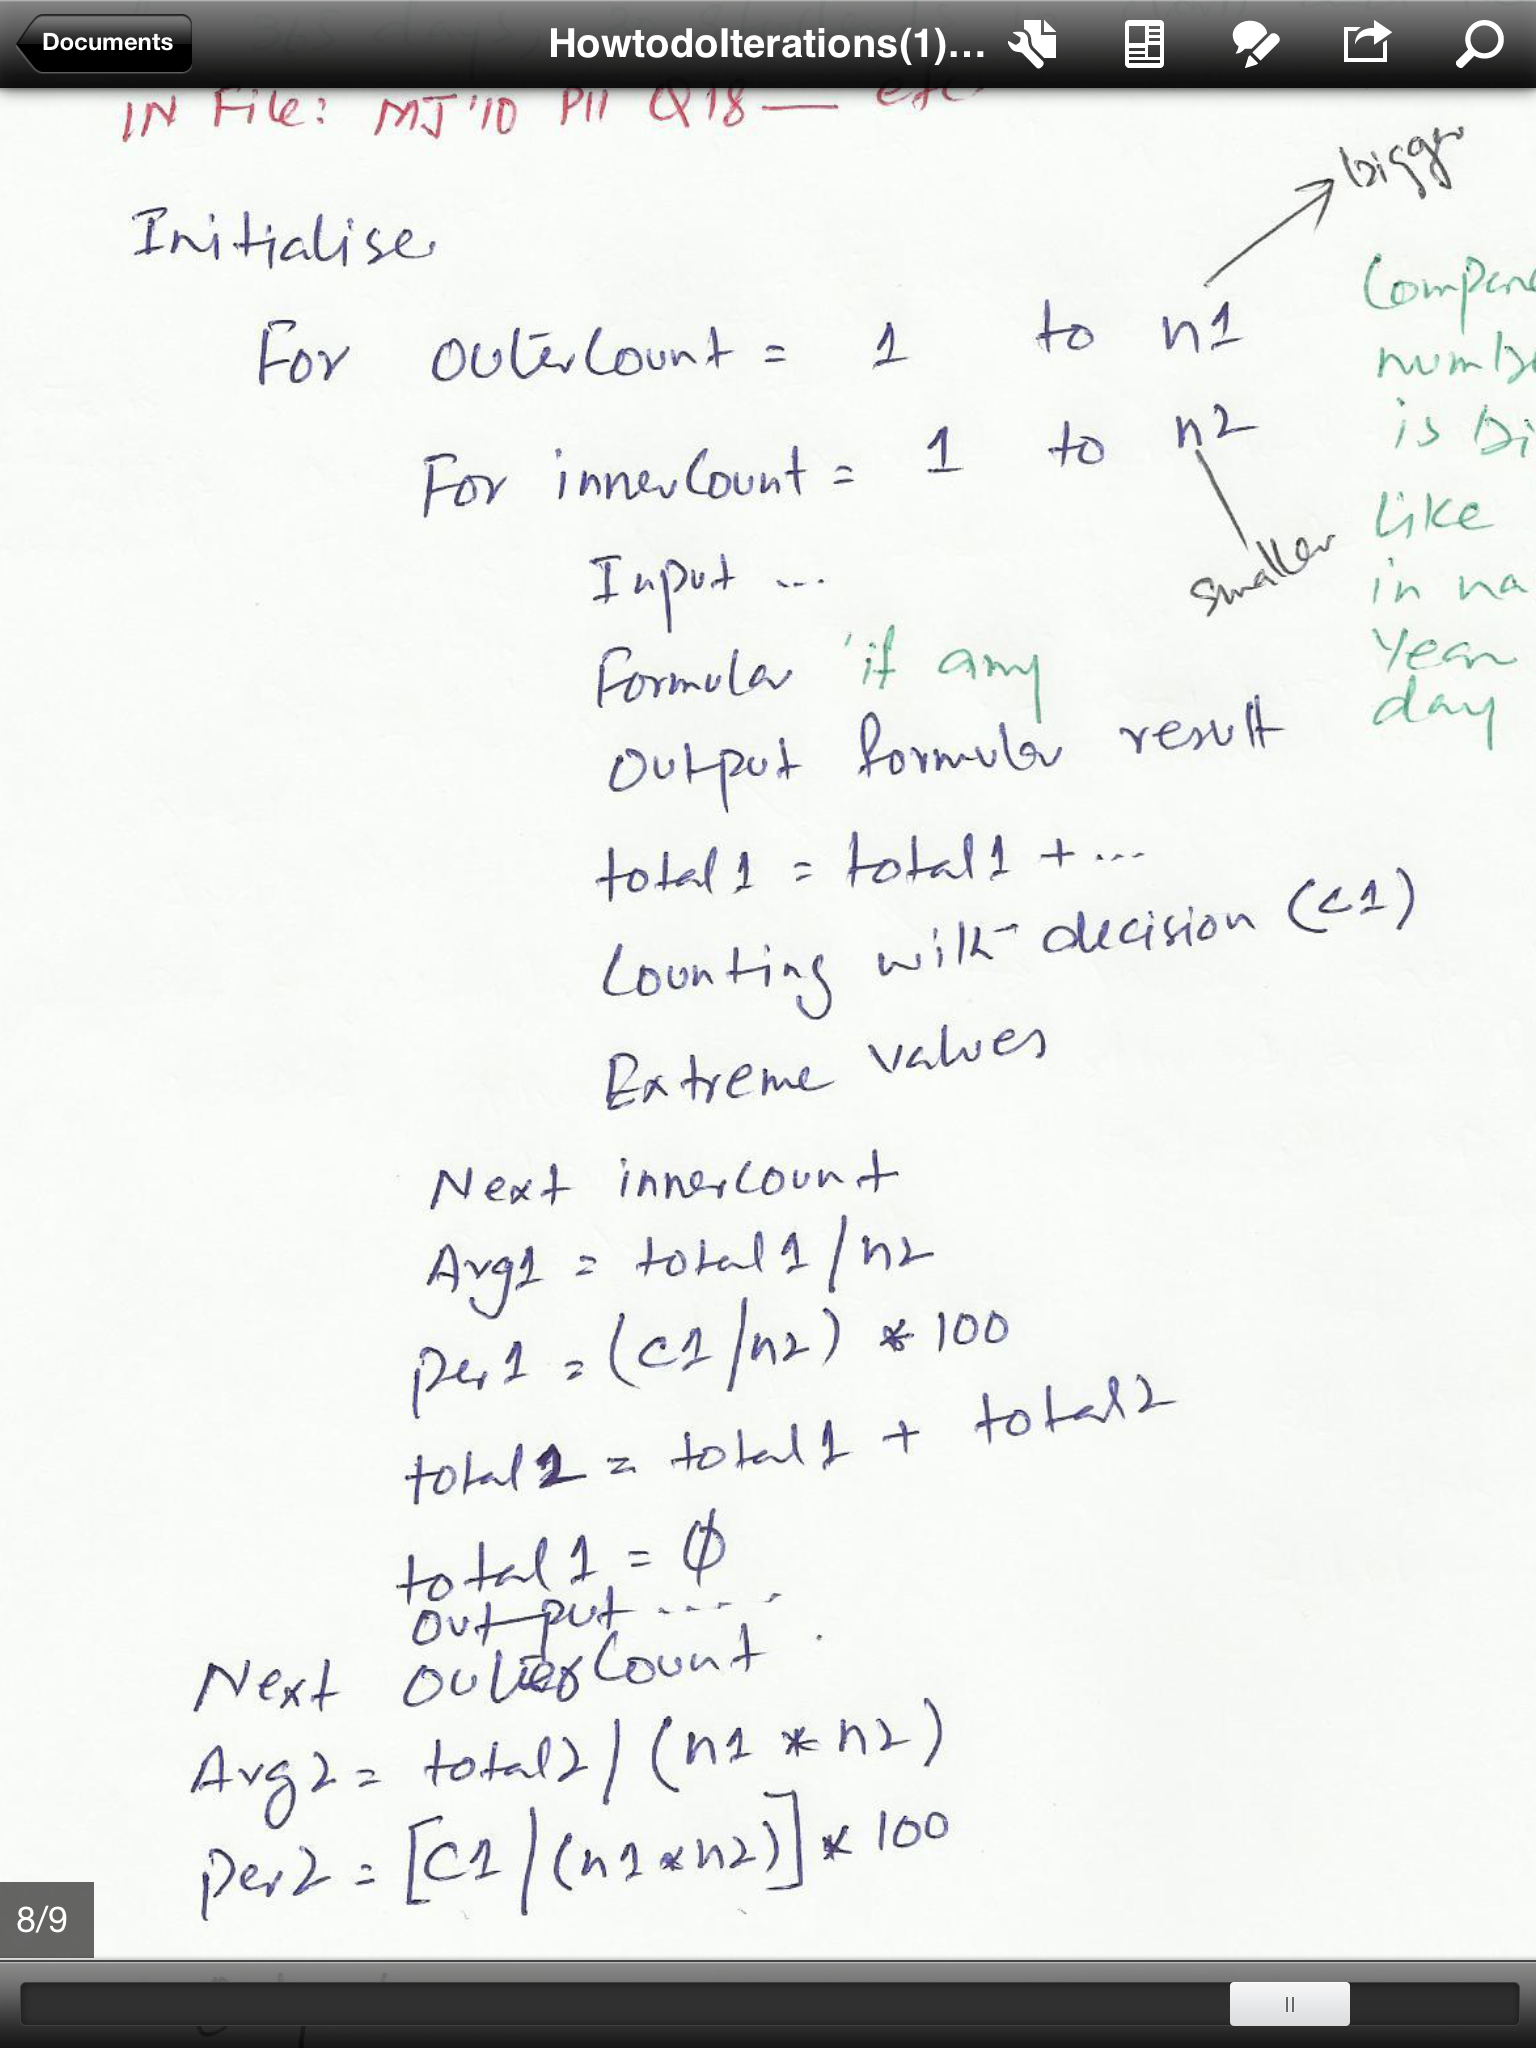 Documents
HowtodoIterations(1)...
IN File: MJ'10 P11 Q18 — etc.
bigger
Initialise
For outerCount = 1 to n1
For innerCount = 1 to n2
smaller
Compare
numbe
is bi
like
in na
year
day
Input ...
Formula 'if any
Output formula result
total1 = total1 + ...
Counting with decision (c1)
Extreme values
Next innerCount
Avg1 = total1/n2
per1 = (c1/n2) * 100
total2 = total1 + total2
total1 = 0
output .....
Next outerCount
Avg2 = total2/(n1 * n2)
per2 = [C1/(n1*n2)] * 100
8/9